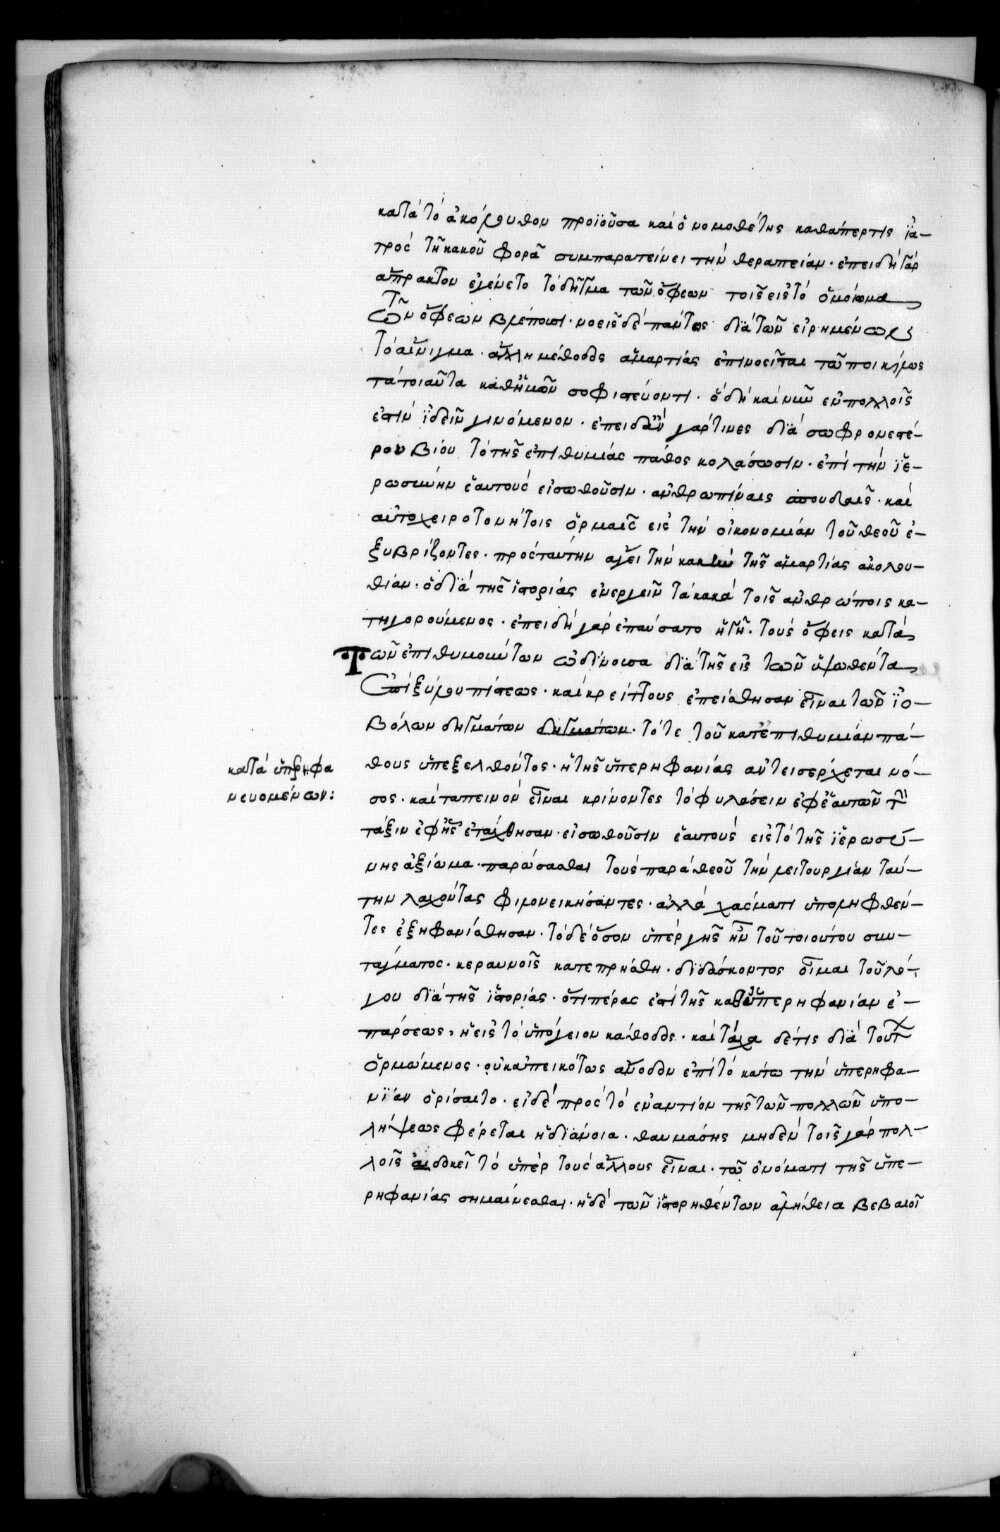 κατὰ τὸ ἀκόλουθον προϊοῦσα καὶ ὁ νομοθέτης καθάπερ τις ἰα-
τρὸς τῇ κακοῦ φορᾶ συμπαρατείνει τὴν θεραπείαν· ἐπειδὴ γὰρ
ἄπρακτον ἐγένετο τὸ δῆγμα τῶν ὄφεων τοῖς εἰς τὸ ὁμοίωμα
τῶν ὄφεων βλέπουσι· νοεῖς δὲ πάντως διὰ τῶν εἰρημένων
τὸ αἴνιγμα· ἄλλη μέθοδος ἁμαρτίας ἐπινοεῖται τῶ ποικίλως
τὰ τοιαῦτα καθ' ἡμῶν σοφιστεύοντι· ὃ δὴ καὶ νῦν ἐν πολλοῖς
ἐστὶν ἰδεῖν γινόμενον· ἐπειδὰν γάρ τινες διὰ σωφρονεστέ-
ρου βίου τὸ τῆς ἐπιθυμίας πάθος κολάσωσιν· ἐπὶ τὴν ἱε-
ρωσύνην ἑαυτοὺς εἰσωθοῦσιν· ἀνθρωπίναις σπουδαῖς· καὶ
αὐτοχειροτονήτοις ὁρμαῖς εἰς τὴν οἰκονομίαν τοῦ θεοῦ ἐ-
ξυβρίζοντες· πρὸς ταύτην ἄγει τὴν κακὴν τῆς ἁμαρτίας ἀκολου-
θίαν· ὁ διὰ τῆς ἱστορίας ἐνεργεῖν τὰ κακὰ τοῖς ἀνθρώποις κα-
τηγορούμενος· ἐπειδὴ γὰρ ἐπαύσατο ἡ γῆ· τοὺς ὄφεις κατὰ
τῶν ἐπιθυμούντων ὠδίνουσα διὰ τῆς εἰς τὸν ὑψωθέντα
ἐπὶ ξύλου πίστεως· καὶ κρείττους ἐπείσθησαν εἶναι τῶν ἰο-
βόλων δηγμάτων δηγμάτων· τότε τοῦ κατ' ἐπιθυμίαν πά-
θους ὑπεξελθόντος· ἡ τῆς ὑπερηφανίας ἀντεισέρχεται νό-
σος· καὶ ταπεινὸν εἶναι κρίνοντες τὸ φυλάσειν ἐφ' ἑαυτῶν τὴν
τάξιν ἐφ' ἧς ἐτάχθησαν· εἰσωθοῦσιν ἑαυτοὺς εἰς τὸ τῆς ἱερωσύ-
νης ἀξίωμα· παρώσασθαι τοὺς παρὰ θεοῦ τὴν λειτουργίαν ταύ-
την λαχόντας φιλονεικήσαντες· ἀλλὰ χάσματι ὑποληφθέν-
τες ἐξηφανίσθησαν· τὸ δὲ ὅσον ὑπὲρ γῆς ἦν τοῦ τοιούτου συν-
τάγματος· κεραυνοῖς κατεπρήσθη· διδάσκοντος οἶμαι τοῦ λό-
γου διὰ τῆς ἱστορίας· ὅτι πέρας ἐστὶ τῆς καθ' ὑπερηφανίαν ἐ-
πάρσεως, ἡ εἰς τὸ ὑπόγειον κάθοδος· καὶ τάχα δέ τις διὰ τούτων
ὁρμώμενος· οὐκ ἀπεικότως ἄνοδον ἐπὶ τὸ κάτω τὴν ὑπερηφα-
νίαν ὁρίσαιτο· εἰ δὲ πρὸς τὸ ἐναντίον τῆς τῶν πολλῶν ὑπο-
λήψεως φέρεται ἡ διάνοια· θαυμάσῃς μηδέν· τοῖς γὰρ πολ-
λοῖς δοκεῖ τὸ ὑπὲρ τοὺς ἄλλους εἶναι· τῶ ὀνόματι τῆς ὑπε-
ρηφανίας σημαίνεσθαι· ἡ δὲ τῶν ἱστορηθέντων ἀλήθεια βεβαιοῖ
κατὰ ὑπερηφα
νευομένων: